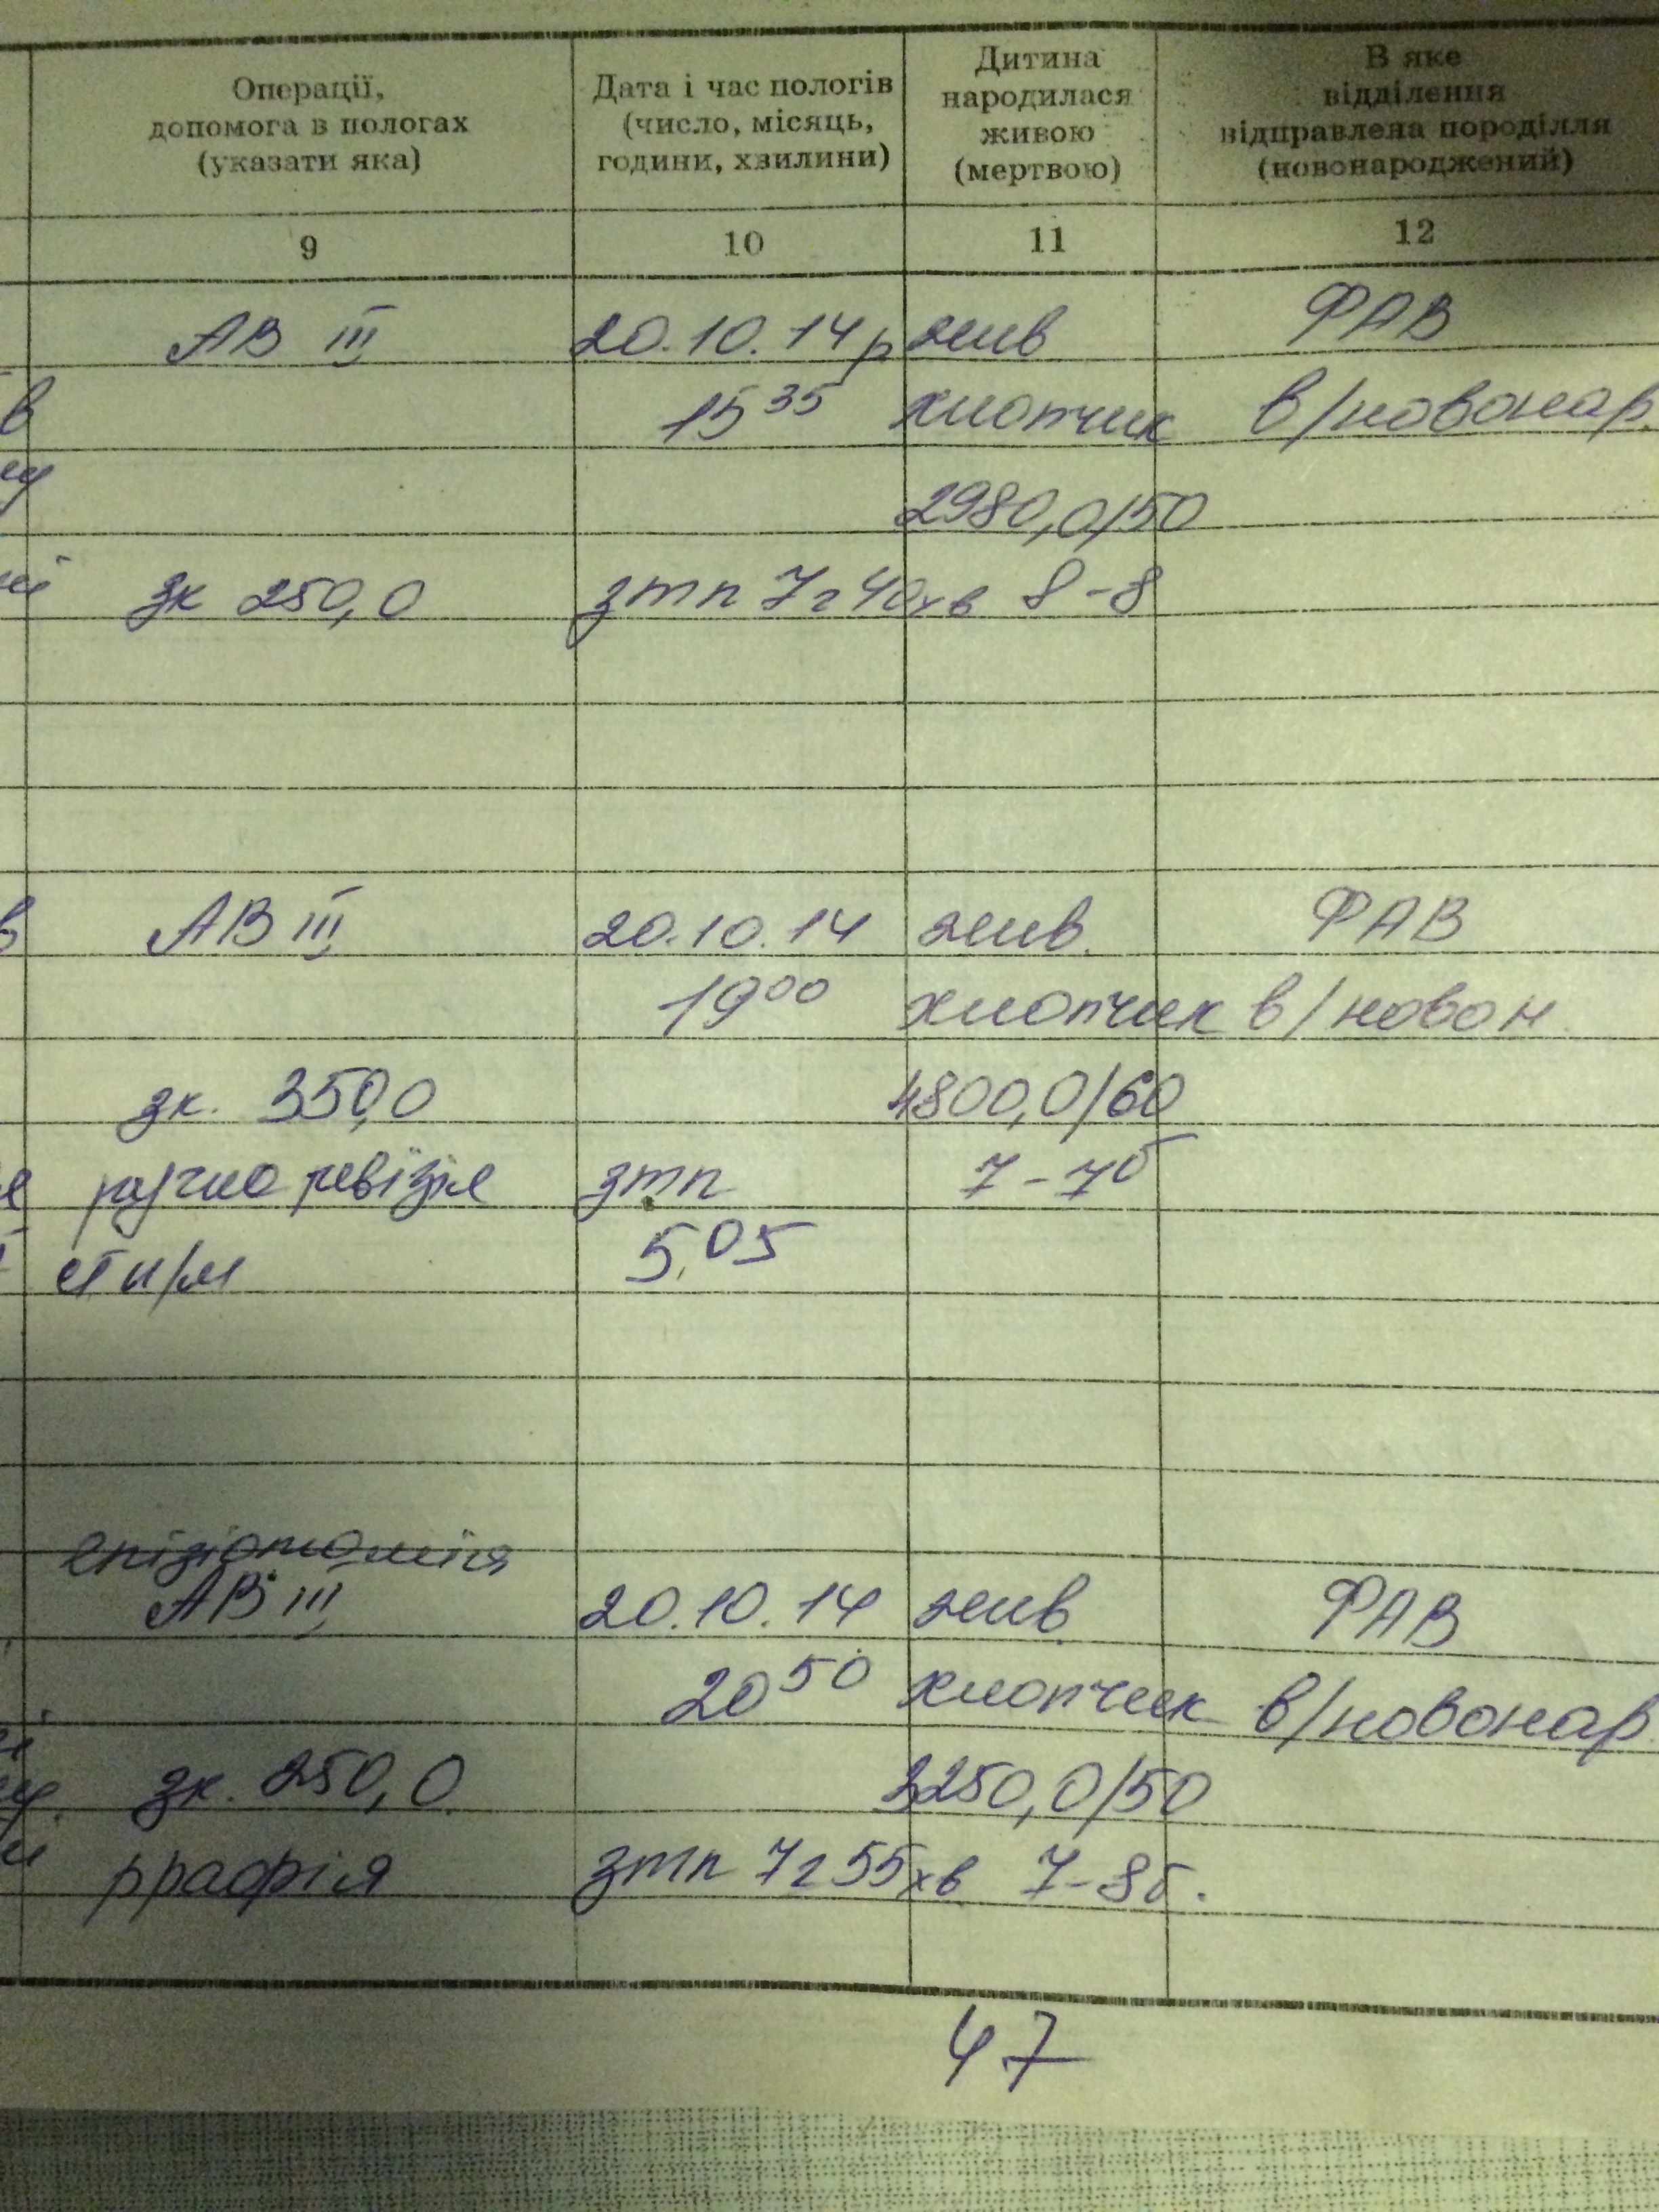 Операції,
допомога в пологах
(указати яка)
Дата і час пологів
(число, місяць,
години, хвилини)
Дитина
народилася
живою
(мертвою)
В яке
відділення
відправлена породілля
(новонароджений)
9 10 11 12
АВ III 20.10.14р жив ФАВ
в 15 35 хлопчик в/новонар.
2980,0/50
зк 250,0 зтп 7г 40хв 8-8
АВ III 20.10.14 жив. ФАВ
19 00 хлопчик в/новон
зк. 350,0 4800,0/60
ручна ревізія зтп 7-7б
ст п/м 5,05
епізіотомія
АВ III 20.10.14 жив ФАВ
20 50 хлопчик в/новонар
зк. 250,0 3250,0/50
ррафія зтп 7г 55хв 7-8б.
47